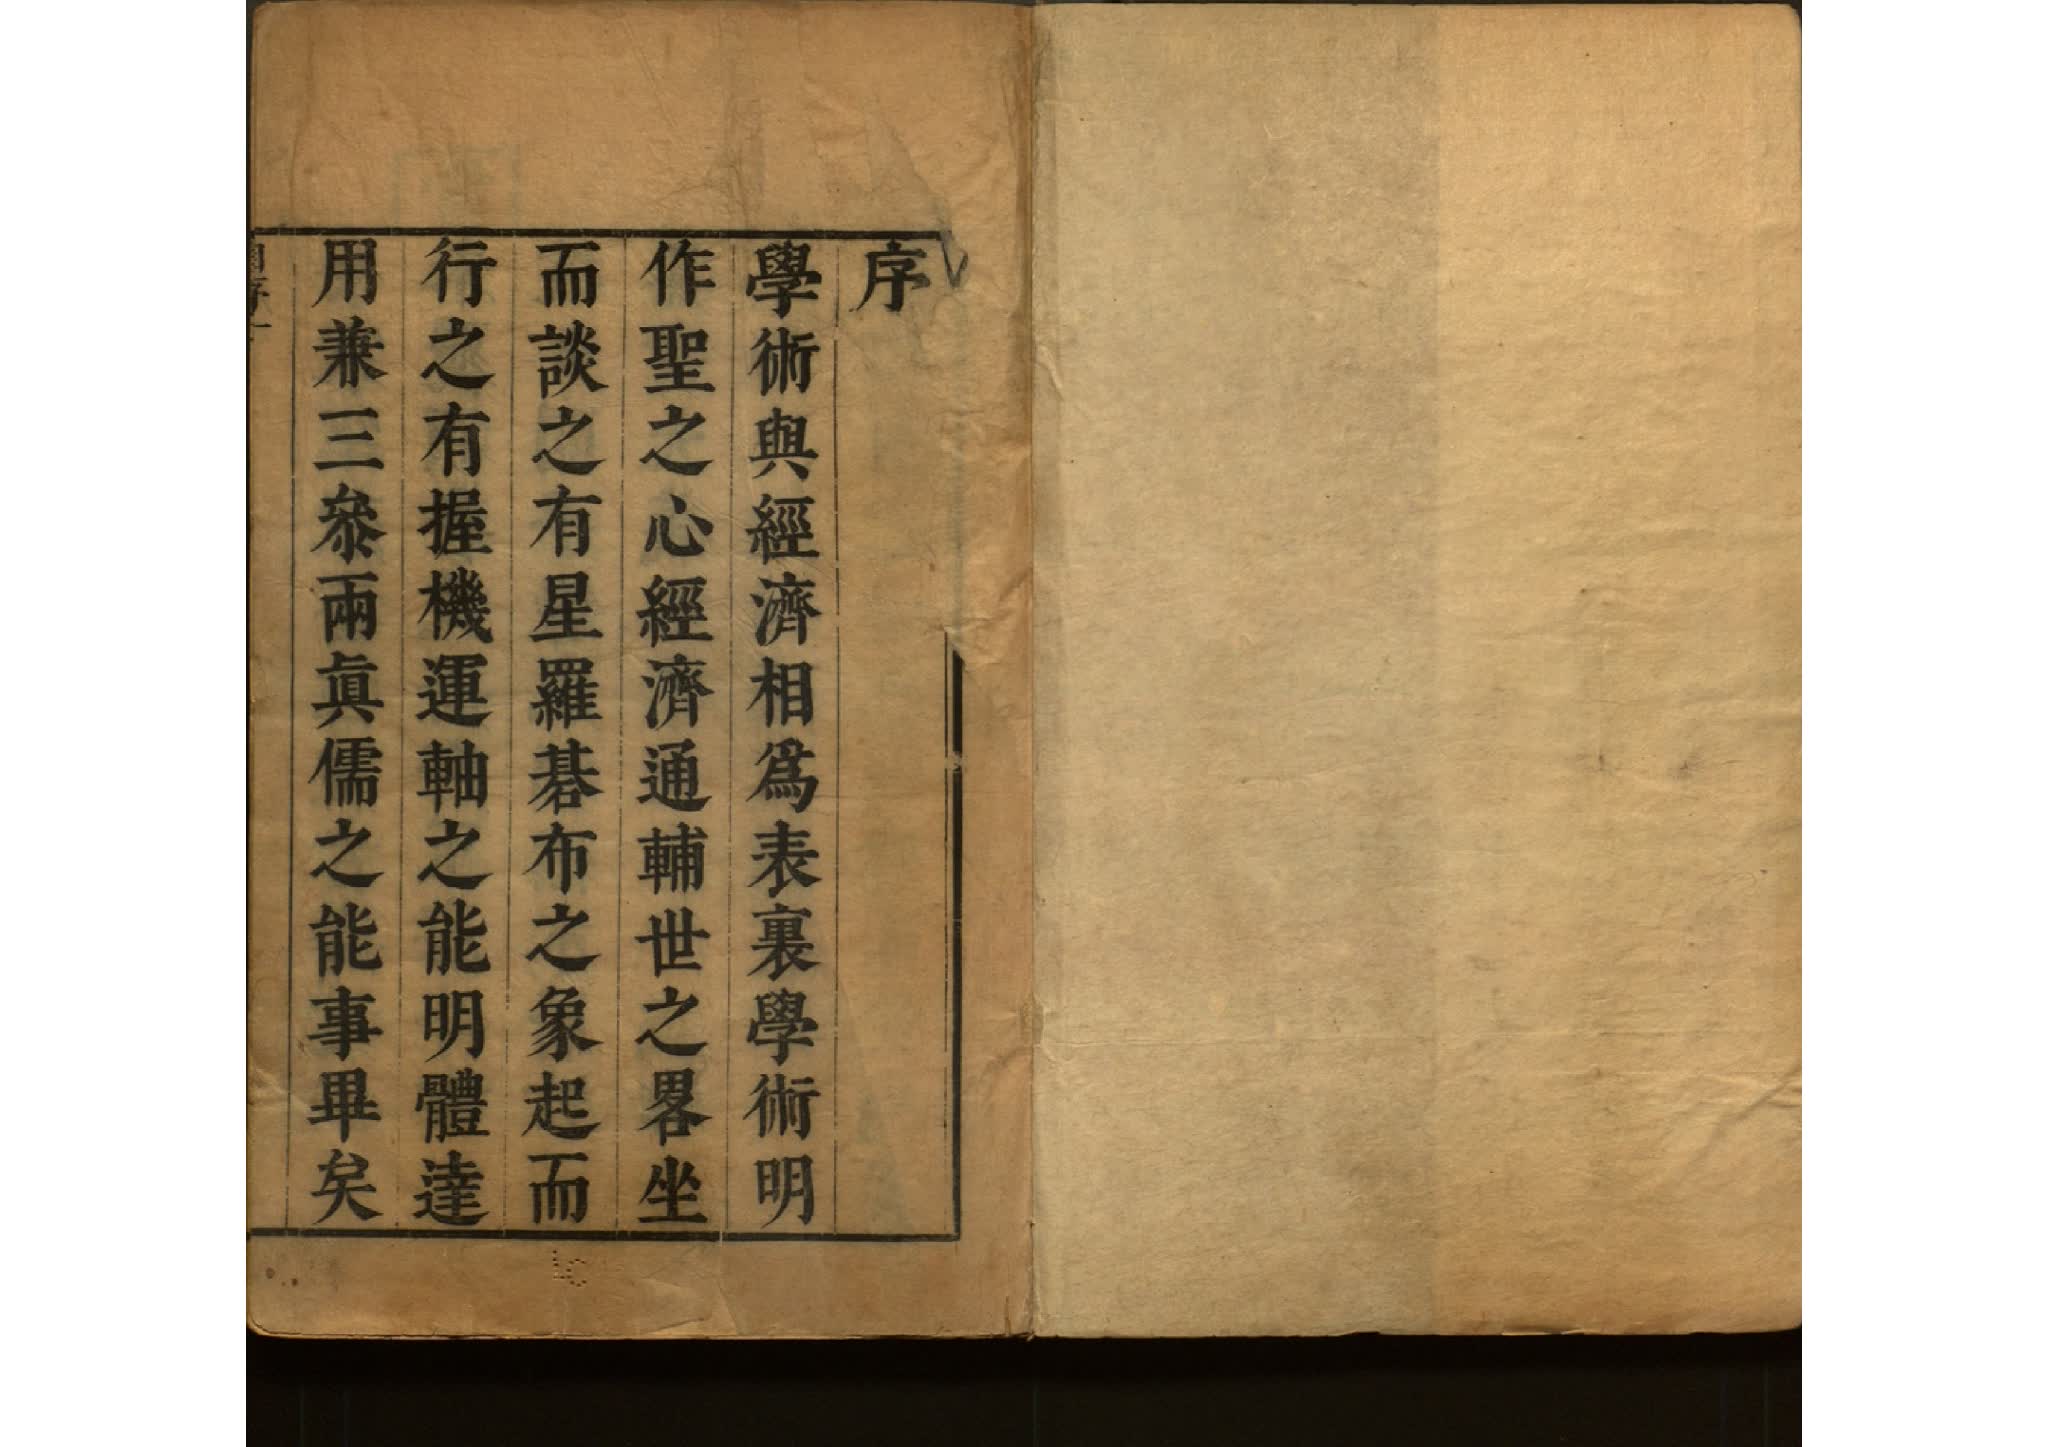 序
學術與經濟相爲表裏學術明
作聖之心經濟通輔世之畧坐
而談之有星羅碁布之象起而
行之有握機運軸之能明體達
用兼三叅兩眞儒之能事畢矣